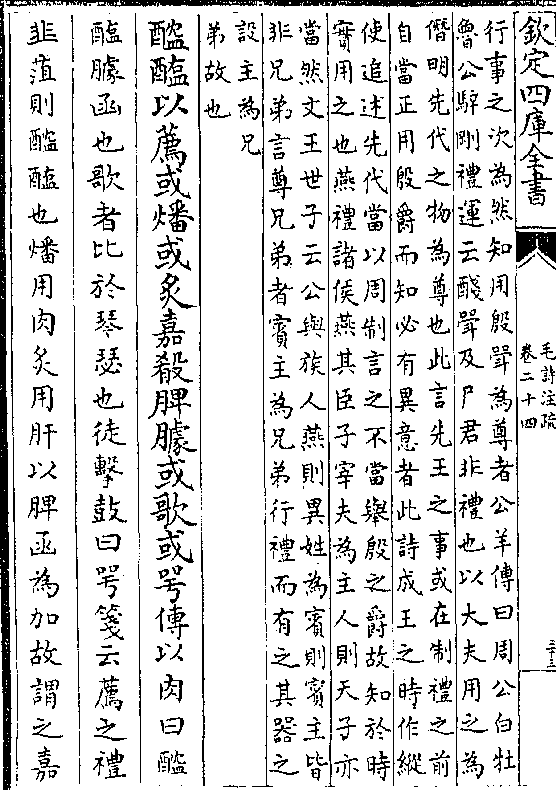 欽定四庫全書
毛詩注疏
卷二十四
三十三
行事之次為然知用殷斝為尊者公羊傳曰周公白牡
魯公騂剛禮運云醆斝及尸君非禮也以大夫用之為
僭明先代之物為尊也此言先王之事或在制禮之前
自當正用殷爵而知必有異意者此詩成王之時作縱
使追述先代當以周制言之不當舉殷之爵故知於時
實用之也燕禮諸侯燕其臣子宰夫為主人則天子亦
當然文王世子云公與族人燕則異姓為賓則賓主皆
非兄弟言尊兄弟者賓主為兄弟行禮而有之其器之
設主為兄
弟故也
醓醢以薦或燔或炙嘉殽脾臄或歌或咢傳以肉曰醓
醢臄函也歌者比於琴瑟也徒擊鼓曰咢箋云薦之禮
韭菹則醓醢也燔用肉炙用肝以脾函為加故謂之嘉